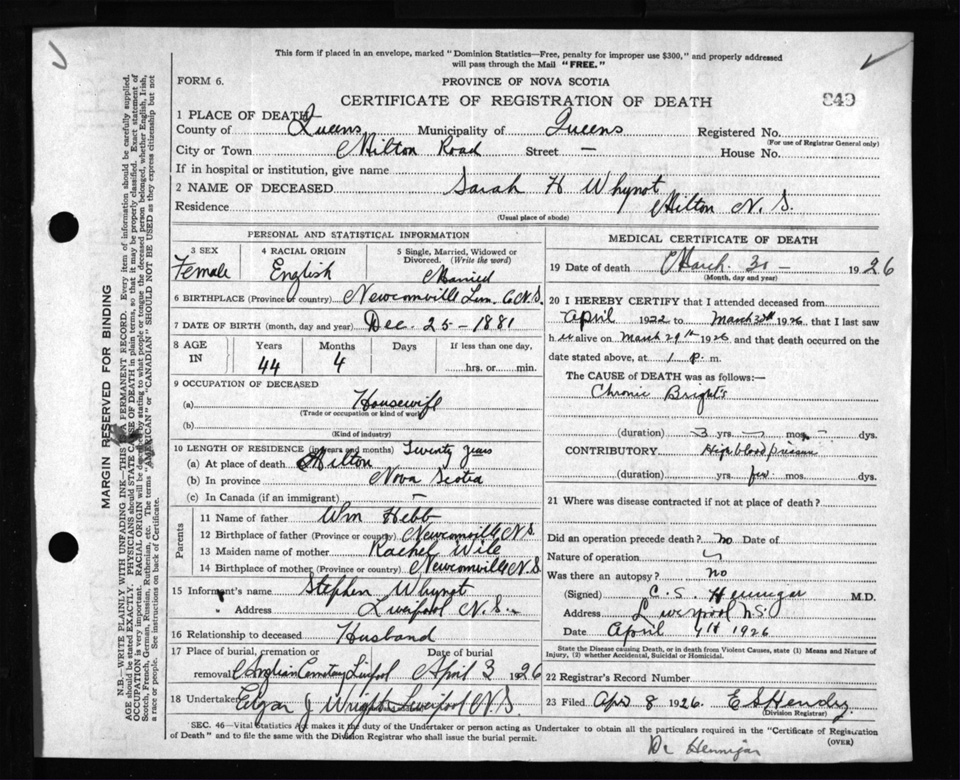 This form if placed in an envelope, marked "Dominion Statistics—Free, penalty for improper use $300," and properly addressed
will pass through the Mail "FREE."
FORM 6.
PROVINCE OF NOVA SCOTIA
CERTIFICATE OF REGISTRATION OF DEATH
849
1 PLACE OF DEATH
County of Queens Municipality of Queens Registered No.
(For use of Registrar General only)
City or Town Milton Road Street — House No.
If in hospital or institution, give name
2 NAME OF DECEASED Sarah H Whynot
Residence Milton N. S.
(Usual place of abode)
PERSONAL AND STATISTICAL INFORMATION
3 SEX Female
4 RACIAL ORIGIN English
5 Single, Married, Widowed or
Divorced. (Write the word)
Married
6 BIRTHPLACE (Province or country) Newcomville Lun. Co N.S.
7 DATE OF BIRTH (month, day and year) Dec. 25 - 1881
8 AGE IN
Years 44
Months 4
Days
If less than one day,
hrs. or min.
9 OCCUPATION OF DECEASED
(a) Housewife
(Trade or occupation or kind of work)
(b)
(Kind of industry)
10 LENGTH OF RESIDENCE (in years and months) Twenty years
(a) At place of death Milton
(b) In province Nova Scotia
(c) In Canada (if an immigrant) —
Parents
11 Name of father Wm Hebb
12 Birthplace of father (Province or country) Newcomville N.S.
13 Maiden name of mother Rachel Wile
14 Birthplace of mother (Province or country) Newcomville N.S
15 Informant's name Stephen Whynot
" Address Liverpool N.S.
16 Relationship to deceased Husband
17 Place of burial, cremation or
removal Anglican Cemetery Liverpool
Date of burial
April 3 1926
18 Undertaker Edgar J Wright Liverpool N.S.
MEDICAL CERTIFICATE OF DEATH
19 Date of death March 30 - 1926
(Month, day and year)
20 I HEREBY CERTIFY that I attended deceased from
April 1922 to March 1926, that I last saw
h er alive on March 29th 1926 and that death occurred on the
date stated above, at 1 p. m.
The CAUSE of DEATH was as follows:—
Chronic Bright's
(duration) 3 yrs. mos. dys.
CONTRIBUTORY High blood pressure
(duration) yrs. few mos. dys.
21 Where was disease contracted if not at place of death?
Did an operation precede death? no Date of
Nature of operation
Was there an autopsy? no
(Signed) C. S. Hennigar M.D.
Address Liverpool N.S.
Date April 4th 1926
State the Disease causing Death, or in death from Violent Causes, state (1) Means and Nature of
Injury, (2) whether Accidental, Suicidal or Homicidal.
22 Registrar's Record Number
23 Filed Apr 8 1926. E S Hendry
(Division Registrar)
SEC. 46—Vital Statistics Act makes it the duty of the Undertaker or person acting as Undertaker to obtain all the particulars required in the "Certificate of Registration
of Death" and to file the same with the Division Registrar who shall issue the burial permit.
(OVER)
Dr Hennigar
MARGIN RESERVED FOR BINDING
N.B.—WRITE PLAINLY WITH UNFADING INK—THIS IS A PERMANENT RECORD. Every item of information should be carefully supplied.
AGE should be stated EXACTLY. PHYSICIANS should STATE CAUSE OF DEATH in plain terms, so that it may be properly classified. Exact statement of
OCCUPATION is very important. RACIAL ORIGIN will be described by stating to what people or tongue the deceased person belonged, whether English, Irish,
Scotch, French, German, Russian, Ruthenian, etc. The terms "AMERICAN" or "CANADIAN" SHOULD NOT BE USED as they express citizenship but not
a race or people. See instructions on back of Certificate.